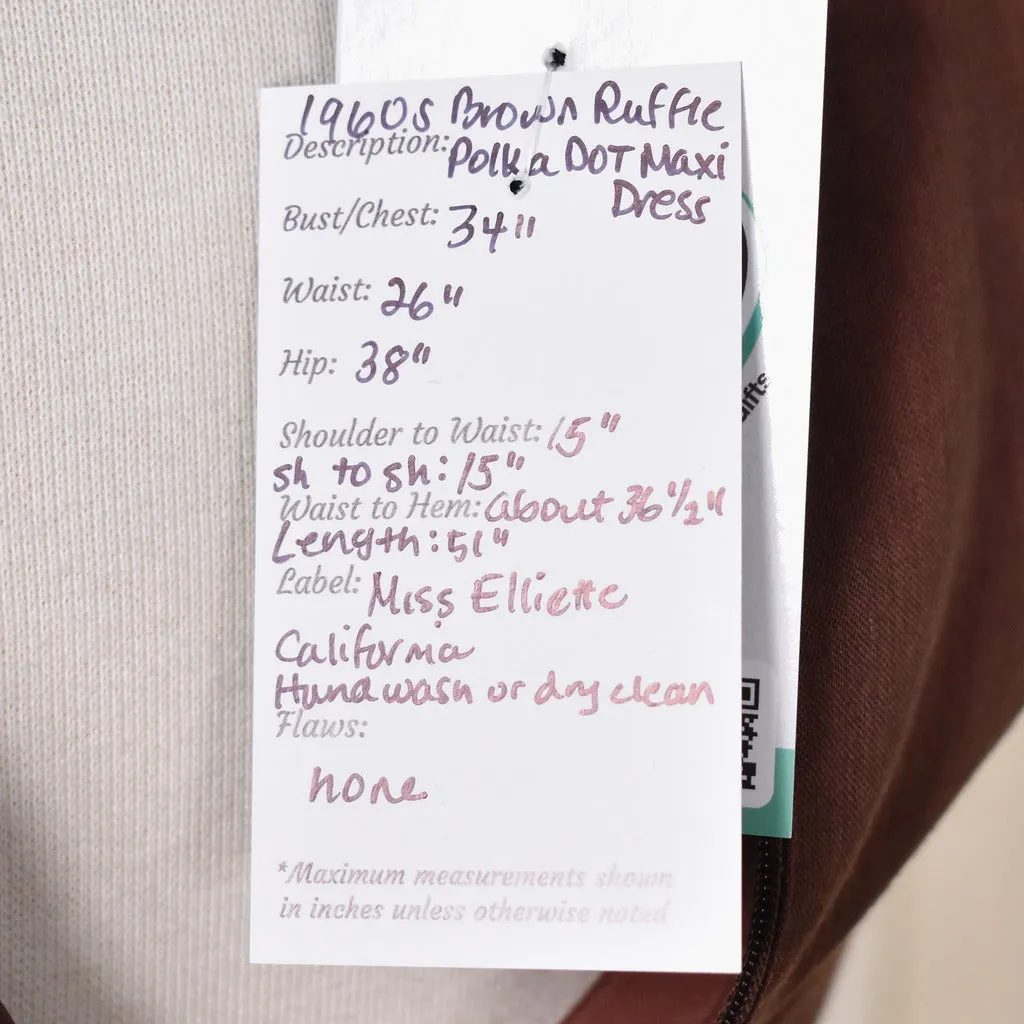 1960s Brown Ruffle
Description: Polka DOT Maxi
Dress
Bust/Chest: 34"
Waist: 26"
Hip: 38"
Shoulder to Waist: 15"
sh to sh: 15"
Waist to Hem: about 36 1/2"
Length: 51"
Label: Miss Elliette
California
Hand wash or dry clean
Flaws:
none
*Maximum measurements shown
in inches unless otherwise noted